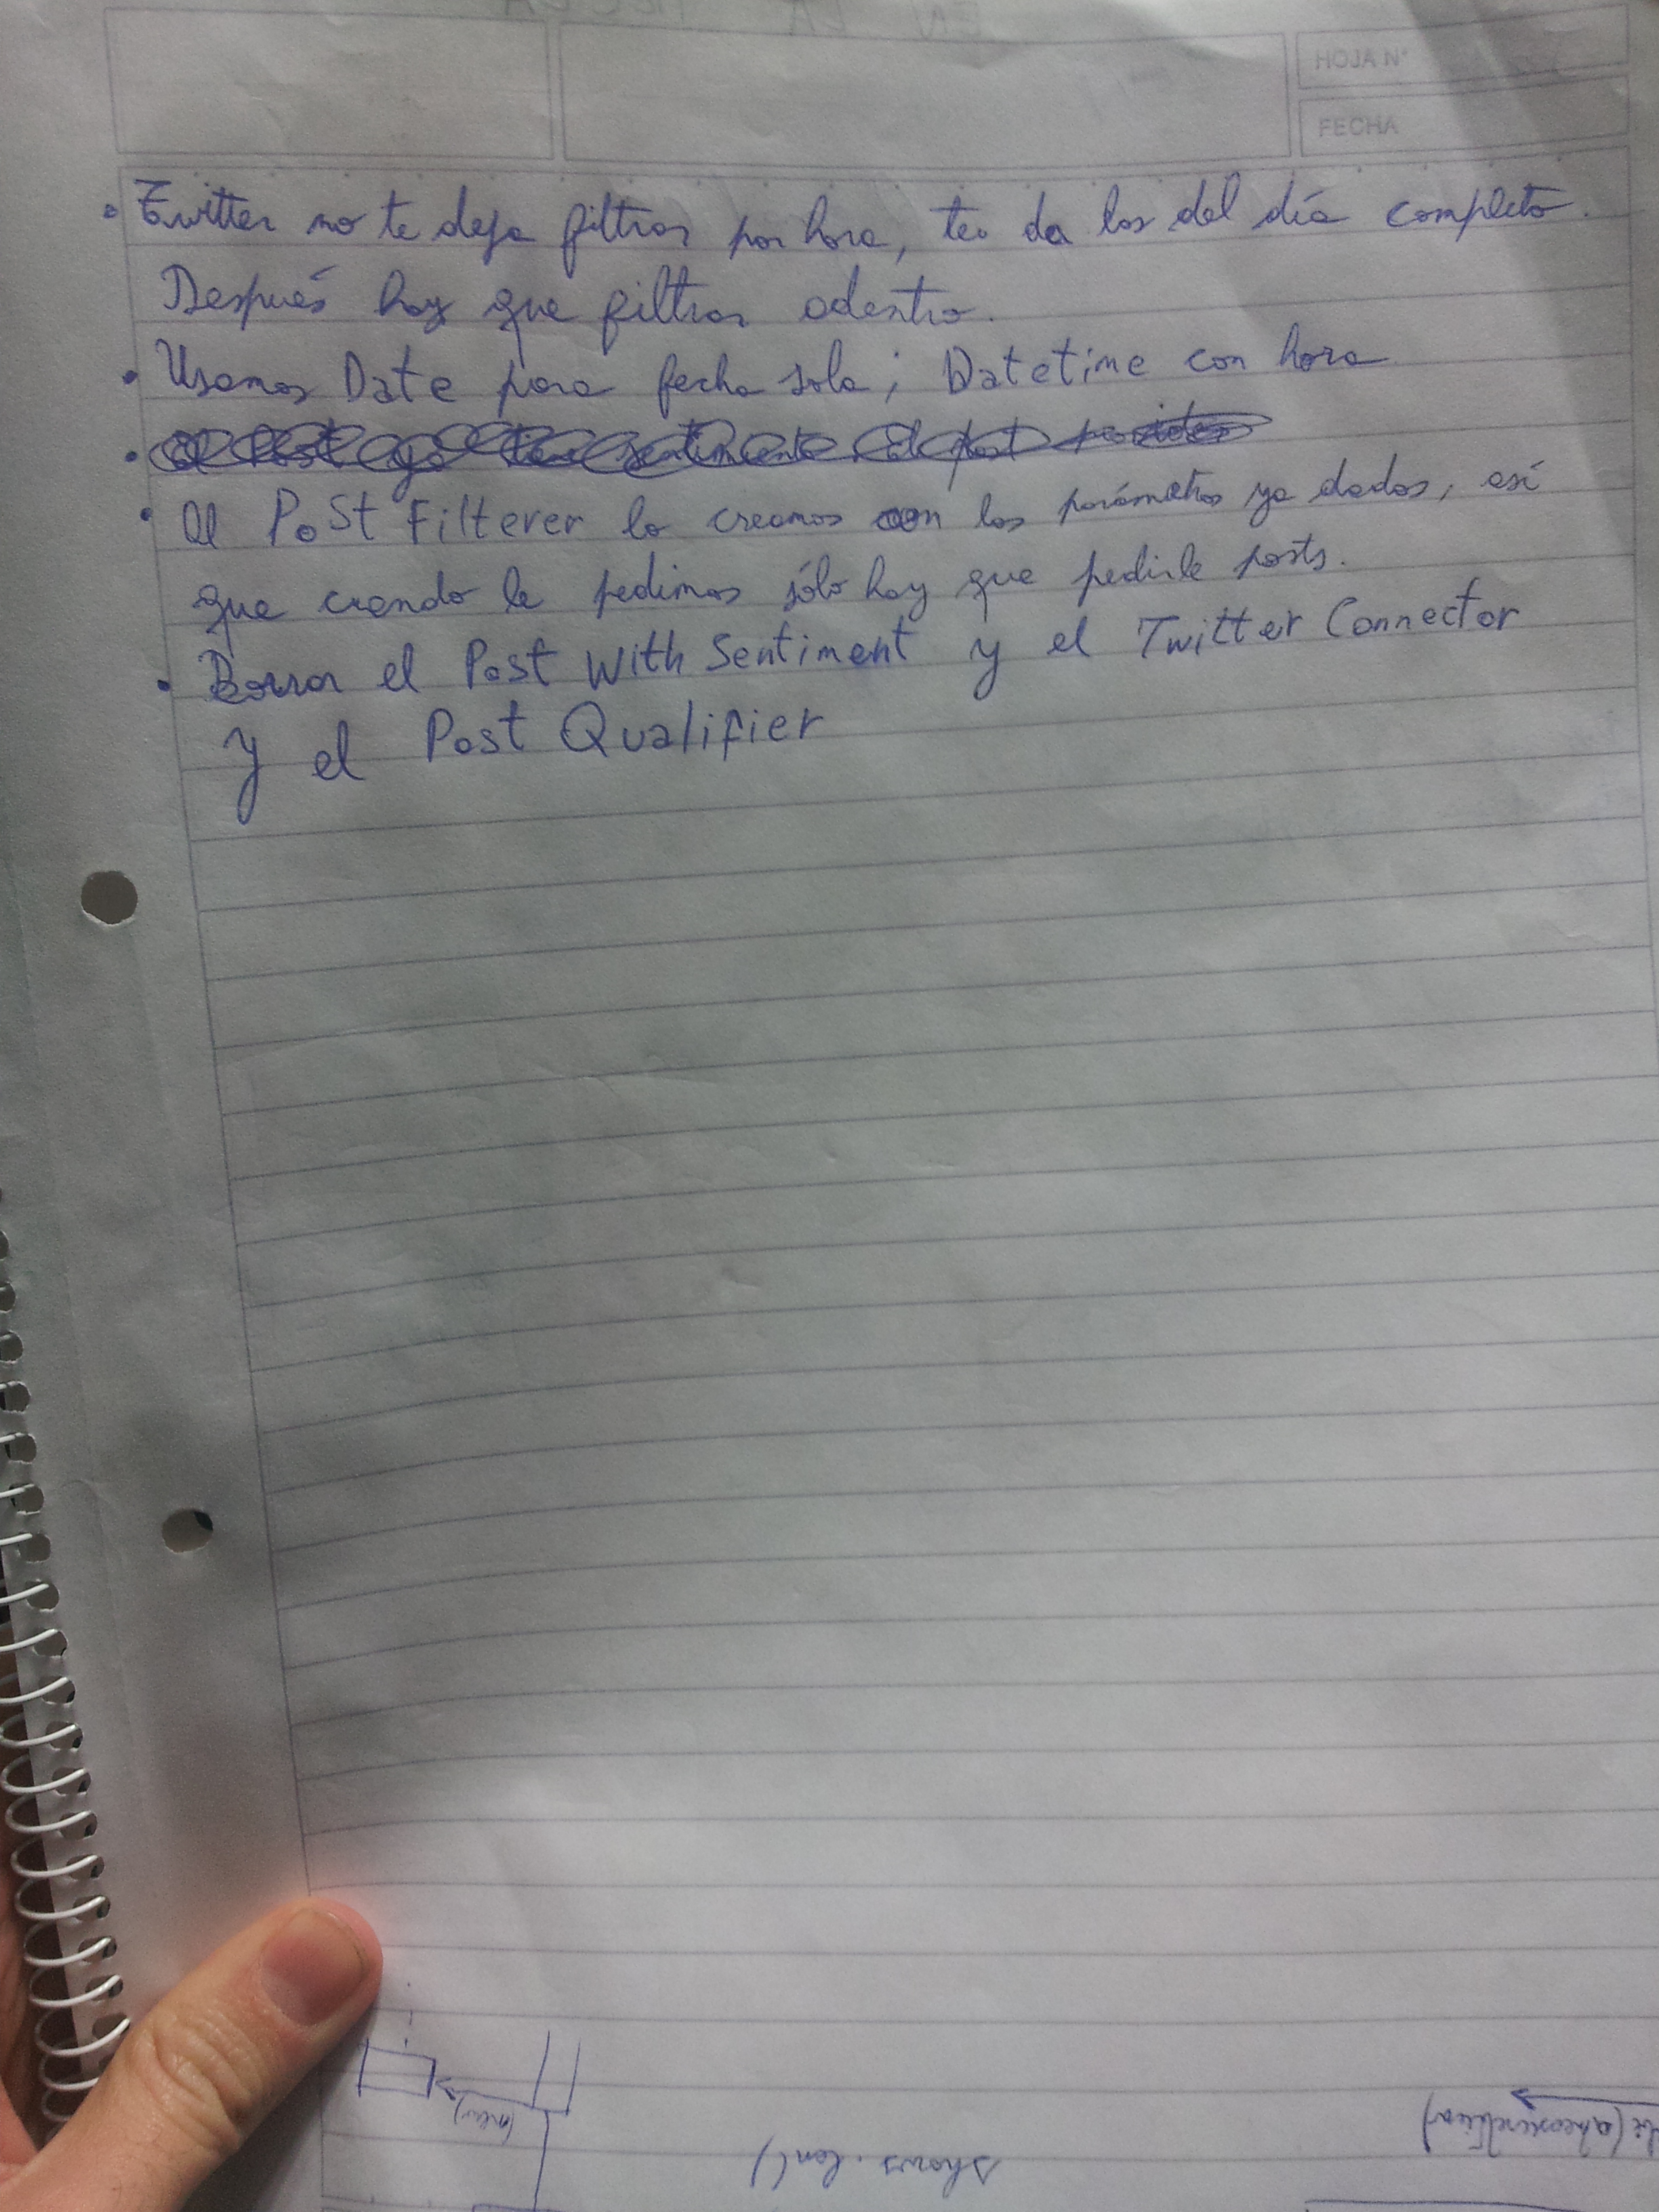 HOJA N°
FECHA
• Twitter no te deja filtrar por hora, te da los del día completo.
Después hay que filtrar adentro.
• Usamos Date para fecha sola; Datetime con hora
• El Post
• Al PostFilterer lo creamos con los parámetros ya dados, así
que cuando le pedimos sólo hay que pedirle posts.
• Borrar el Post With Sentiment y el Twitter Connector
y el Post Qualifier
shows.len()
(new)